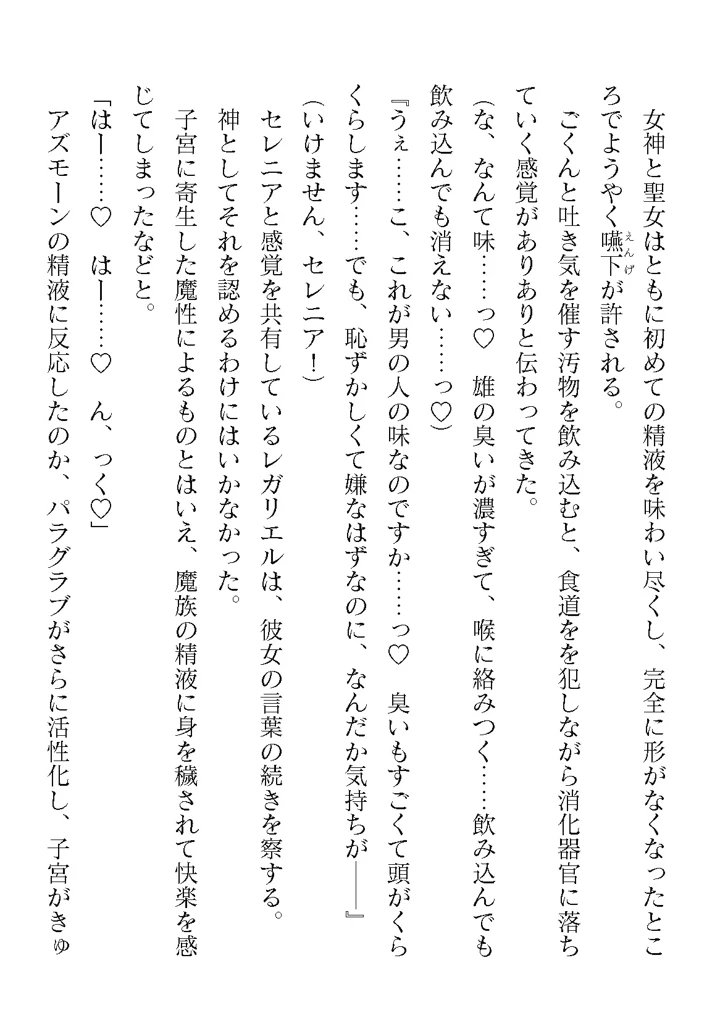 女神と聖女はともに初めての精液を味わい尽くし、完全に形がなくなったとこ
ろでようやく嚥下が許される。
えんげ
ごくんと吐き気を催す汚物を飲み込むと、食道をを犯しながら消化器官に落ち
ていく感覚がありありと伝わってきた。
(な、なんて味……っ♡　雄の臭いが濃すぎて、喉に絡みつく……飲み込んでも
飲み込んでも消えない……っ♡)
『うぇ……こ、これが男の人の味なのですか……っ♡　臭いもすごくて頭がくら
くらします……でも、恥ずかしくて嫌なはずなのに、なんだか気持ちが――』
(いけません、セレニア！)
セレニアと感覚を共有しているレガリエルは、彼女の言葉の続きを察する。
神としてそれを認めるわけにはいかなかった。
子宮に寄生した魔性によるものとはいえ、魔族の精液に身を穢されて快楽を感
じてしまったなどと。
「はー……♡　はー……♡　ん、っく♡」
アズモーンの精液に反応したのか、パラグラブがさらに活性化し、子宮がきゅ